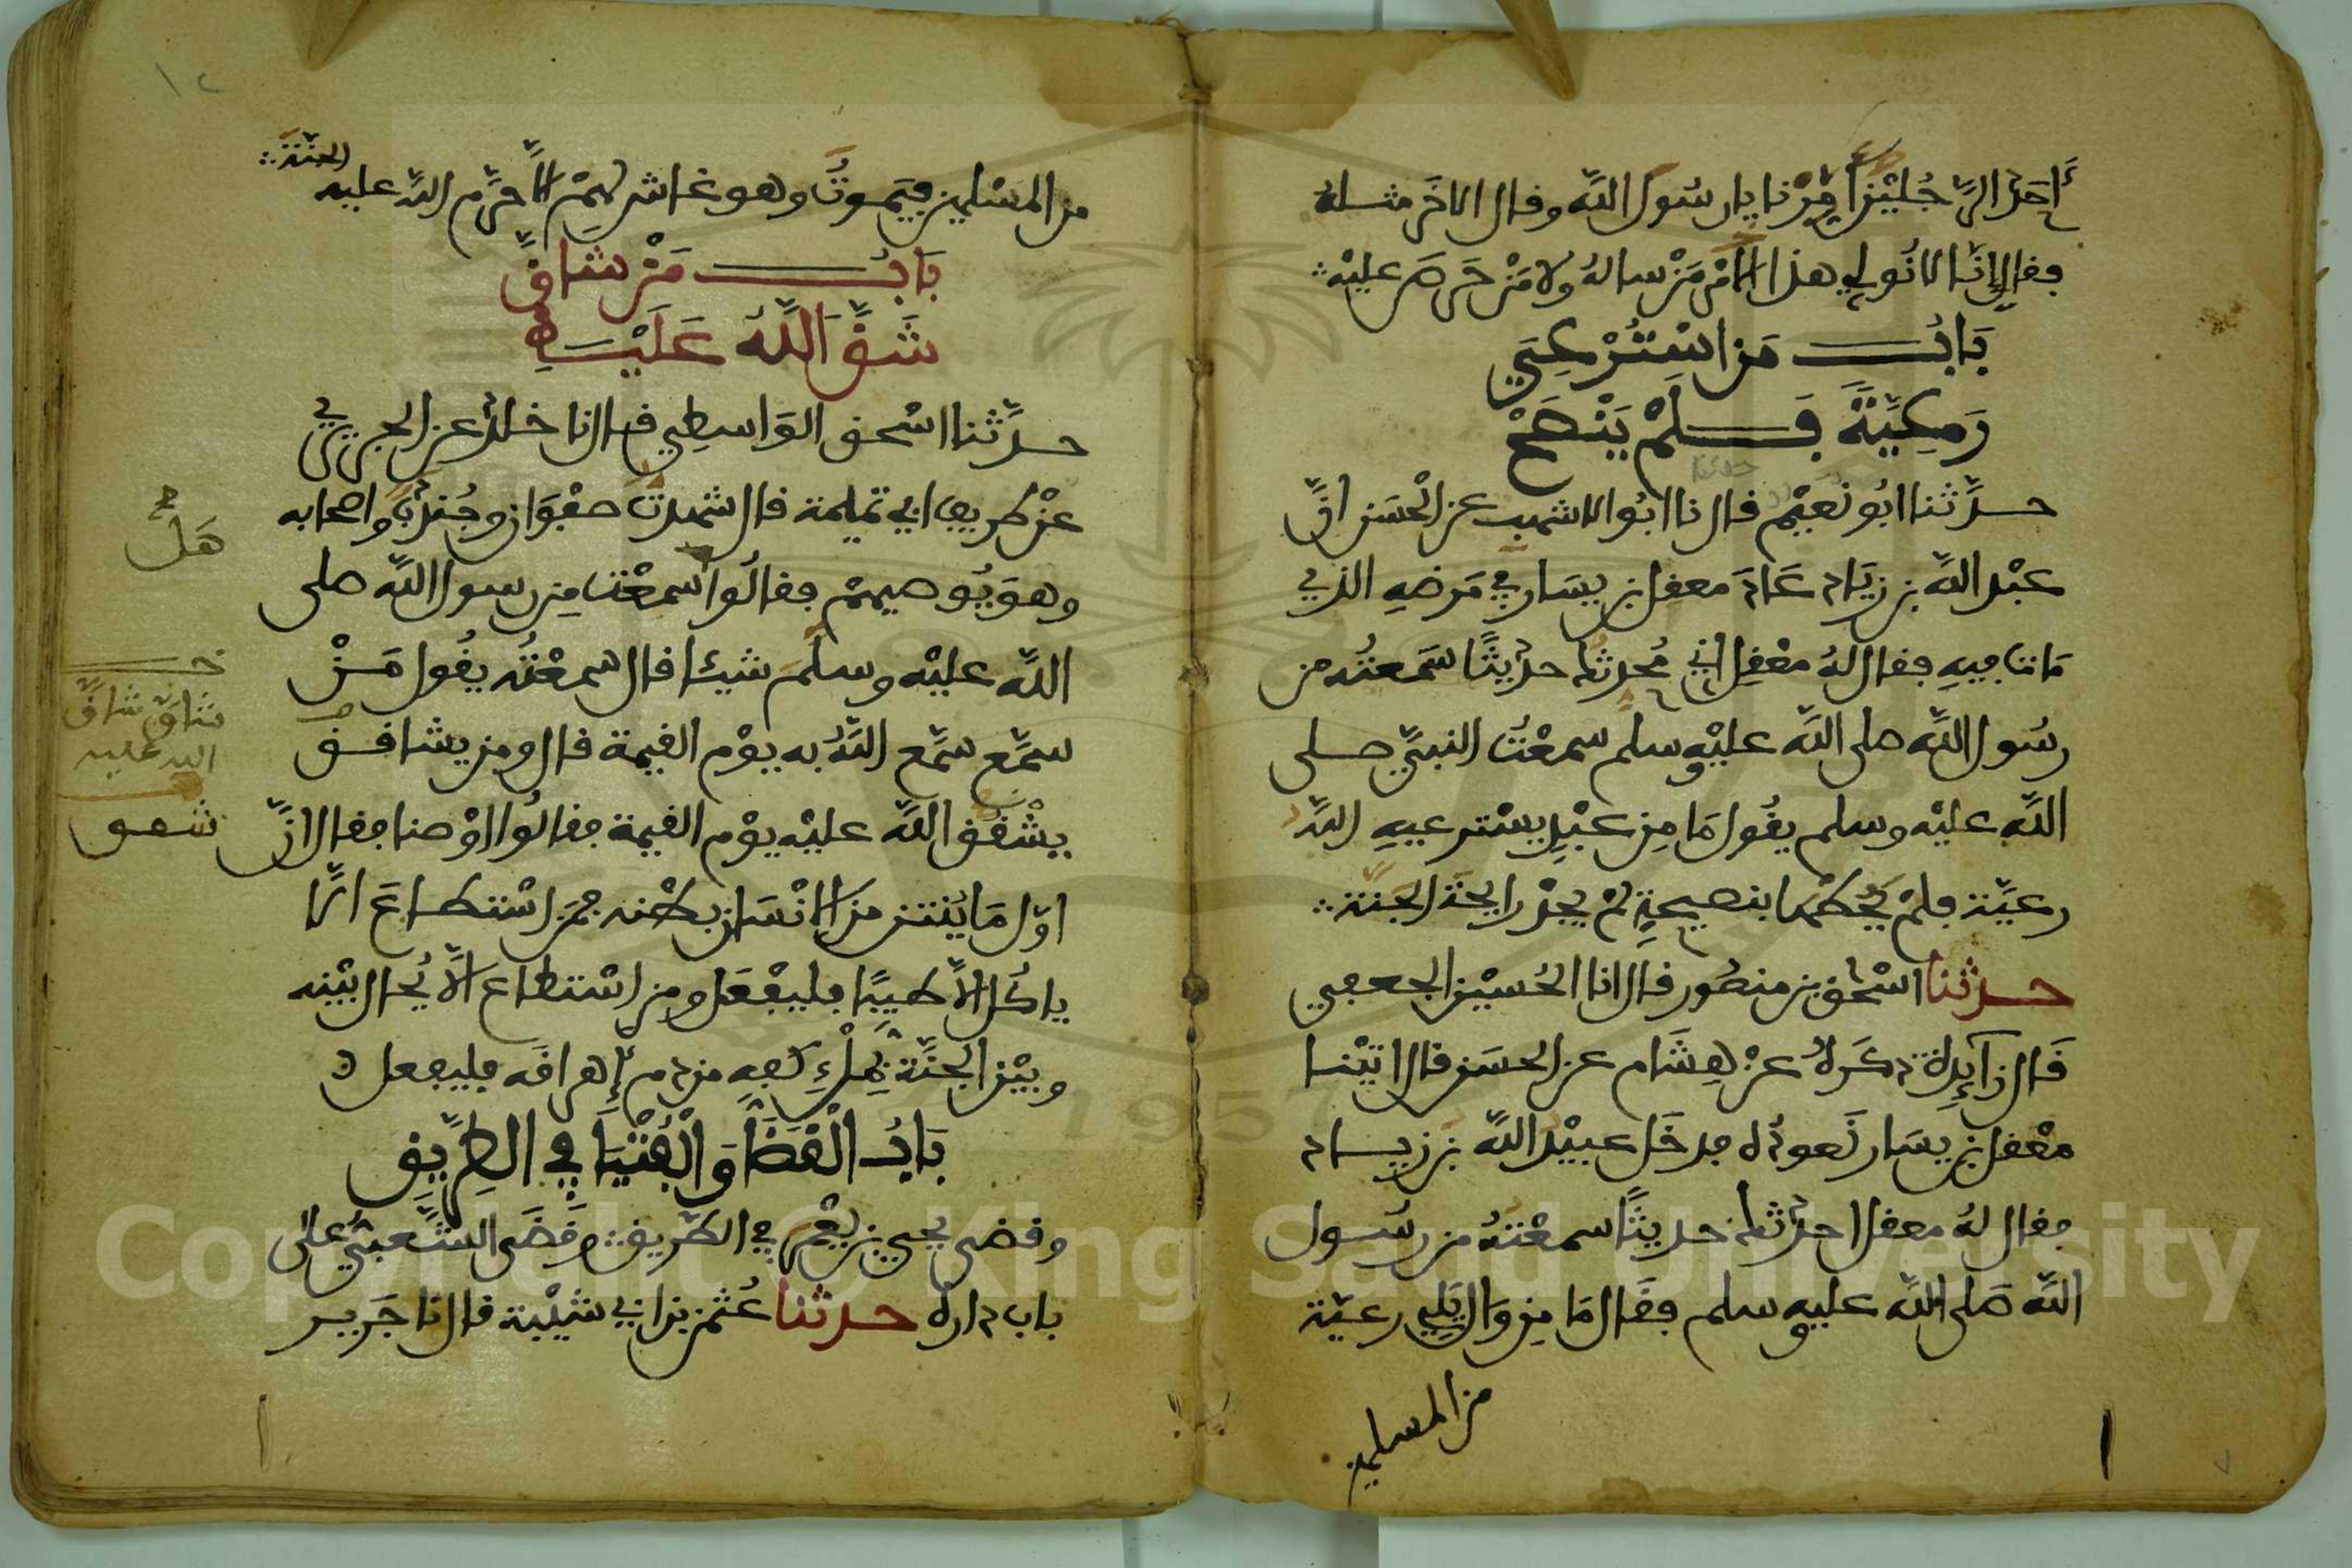 أحد الرجلين أمرنا يا رسول الله وقال الاخر مثله
فقال إنا لا نولي هذا الامر من ساله ولا من حرص عليه
باب من استرعي
رعية فلم ينصح
حدثنا ابو نعيم قال نا ابو الاشهب عن الحسن ان
عبد الله بن زياد عاد معقل بن يسار في مرضه الذي
مات فيه فقال له معقل اني محدثك حديثا سمعته من
رسول الله صلى الله عليه وسلم سمعت النبي صلى
الله عليه وسلم يقول ما من عبد يسترعيه الله
رعية فلم يحطها بنصيحة لم يجد رايحة الجنة
حدثنا اسحق بن منصور قال انا الحسين الجعفي
قال زآيدة ذكره عن هشام عن الحسن قال اتينا
معقل بن يسار نعوده فدخل عبيد الله بن زياد
فقال له معقل احدثك حديثا سمعته من رسول
الله صلى الله عليه وسلم فقال ما من وال يلي رعية
من المسلمين
١٢
من المسلمين فيموت وهو غاش لهم الا حرم الله عليه الجنة
باب من شاق
شق الله عليه
حدثنا اسحق الواسطي قال نا خالد عن الجريري
عن طريف ابي تميمة قال شهدت صفوان وجندبا واصحابه
وهو يوصيهم فقالوا سمعت من رسول الله صلى
هل
الله عليه وسلم شيئا قال سمعته يقول من
سمع سمع الله به يوم القيمة قال ومن يشاقق
شاق شاق
الله عليه
يشقق الله عليه يوم القيمة فقالوا اوصنا فقال ان
اول ما ينتن من الانسان بطنه فمن استطاع الا
ياكل الا طيبا فليفعل ومن استطاع الا يحال بينه
وبين الجنة بملء كفه من دم إهراقه فليفعل
باب القضا والفتيا في الطريق
وقضى يحيى بن يعمر في الطريق وقضى الشعبي على
باب داره حدثنا عثمن بن ابي شيبة قال نا جرير
Copyright © King Saud University
1957